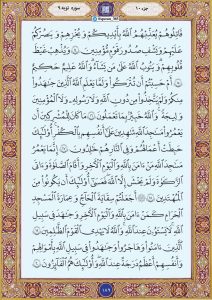 جزء ۱۰
سوره توبه ۹
قَٰتِلُوهُمْ يُعَذِّبْهُمُ ٱللَّهُ بِأَيْدِيكُمْ وَيُخْزِهِمْ وَيَنصُرْكُمْ
عَلَيْهِمْ وَيَشْفِ صُدُورَ قَوْمٍ مُّؤْمِنِينَ ۝١٤ وَيُذْهِبْ غَيْظَ
قُلُوبِهِمْ وَيَتُوبُ ٱللَّهُ عَلَىٰ مَن يَشَآءُ وَٱللَّهُ عَلِيمٌ حَكِيمٌ
۝١٥ أَمْ حَسِبْتُمْ أَن تُتْرَكُوا۟ وَلَمَّا يَعْلَمِ ٱللَّهُ ٱلَّذِينَ جَٰهَدُوا۟
مِنكُمْ وَلَمْ يَتَّخِذُوا۟ مِن دُونِ ٱللَّهِ وَلَا رَسُولِهِۦ وَلَا ٱلْمُؤْمِنِينَ
وَلِيجَةً وَٱللَّهُ خَبِيرٌۢ بِمَا تَعْمَلُونَ ۝١٦ مَا كَانَ لِلْمُشْرِكِينَ أَن
يَعْمُرُوا۟ مَسَٰجِدَ ٱللَّهِ شَٰهِدِينَ عَلَىٰٓ أَنفُسِهِم بِٱلْكُفْرِ أُو۟لَٰٓئِكَ
حَبِطَتْ أَعْمَٰلُهُمْ وَفِى ٱلنَّارِ هُمْ خَٰلِدُونَ ۝١٧ إِنَّمَا يَعْمُرُ
مَسَٰجِدَ ٱللَّهِ مَنْ ءَامَنَ بِٱللَّهِ وَٱلْيَوْمِ ٱلْءَاخِرِ وَأَقَامَ ٱلصَّلَوٰةَ وَءَاتَى
ٱلزَّكَوٰةَ وَلَمْ يَخْشَ إِلَّا ٱللَّهَ فَعَسَىٰٓ أُو۟لَٰٓئِكَ أَن يَكُونُوا۟ مِنَ
ٱلْمُهْتَدِينَ ۝١٨ أَجَعَلْتُمْ سِقَايَةَ ٱلْحَآجِّ وَعِمَارَةَ ٱلْمَسْجِدِ
ٱلْحَرَامِ كَمَنْ ءَامَنَ بِٱللَّهِ وَٱلْيَوْمِ ٱلْءَاخِرِ وَجَٰهَدَ فِى سَبِيلِ
ٱللَّهِ لَا يَسْتَوُۥنَ عِندَ ٱللَّهِ وَٱللَّهُ لَا يَهْدِى ٱلْقَوْمَ ٱلظَّٰلِمِينَ ۝١٩
ٱلَّذِينَ ءَامَنُوا۟ وَهَاجَرُوا۟ وَجَٰهَدُوا۟ فِى سَبِيلِ ٱللَّهِ بِأَمْوَٰلِهِمْ
وَأَنفُسِهِمْ أَعْظَمُ دَرَجَةً عِندَ ٱللَّهِ وَأُو۟لَٰٓئِكَ هُمُ ٱلْفَآئِزُونَ ۝٢٠
۱۸۹